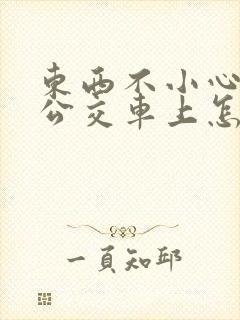 東西不小心
公交車上怎
一頁知邱